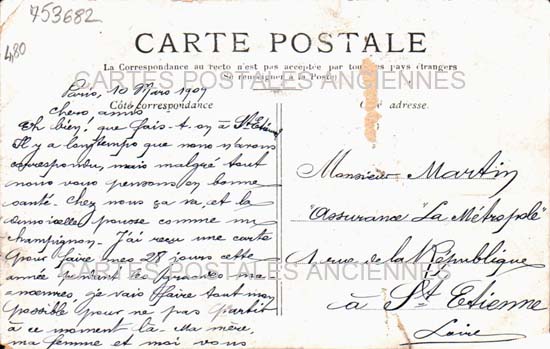 753682
4,80
CARTE POSTALE
La Correspondance au recto n'est pas acceptée par tous les pays étrangers
Se renseigner à la Poste
CARTES POSTALES ANCIENNES
Côté correspondance
Côté adresse.
Paris, 10 Mars 1909
Chers amis
Eh bien! que fais-t-on à St Etienne
Il y a longtemps que nous n'avons
correspondu, mais malgré tout
nous vous pensons en bonne
santé. Chez nous ça va, et la
demoiselle pousse comme un
champignon. J'ai reçu une carte
pour faire mes 28 jours cette
année pendant les grandes ma-
noeuvres, je vais faire tout mon
possible pour ne pas partir
à ce moment là. Ma mère,
ma femme et moi vous
Monsieur Martin
"Assurance "La Métropole"
1 rue de la République
à St Etienne
Loire
CARTES POSTALES ANCIENNES